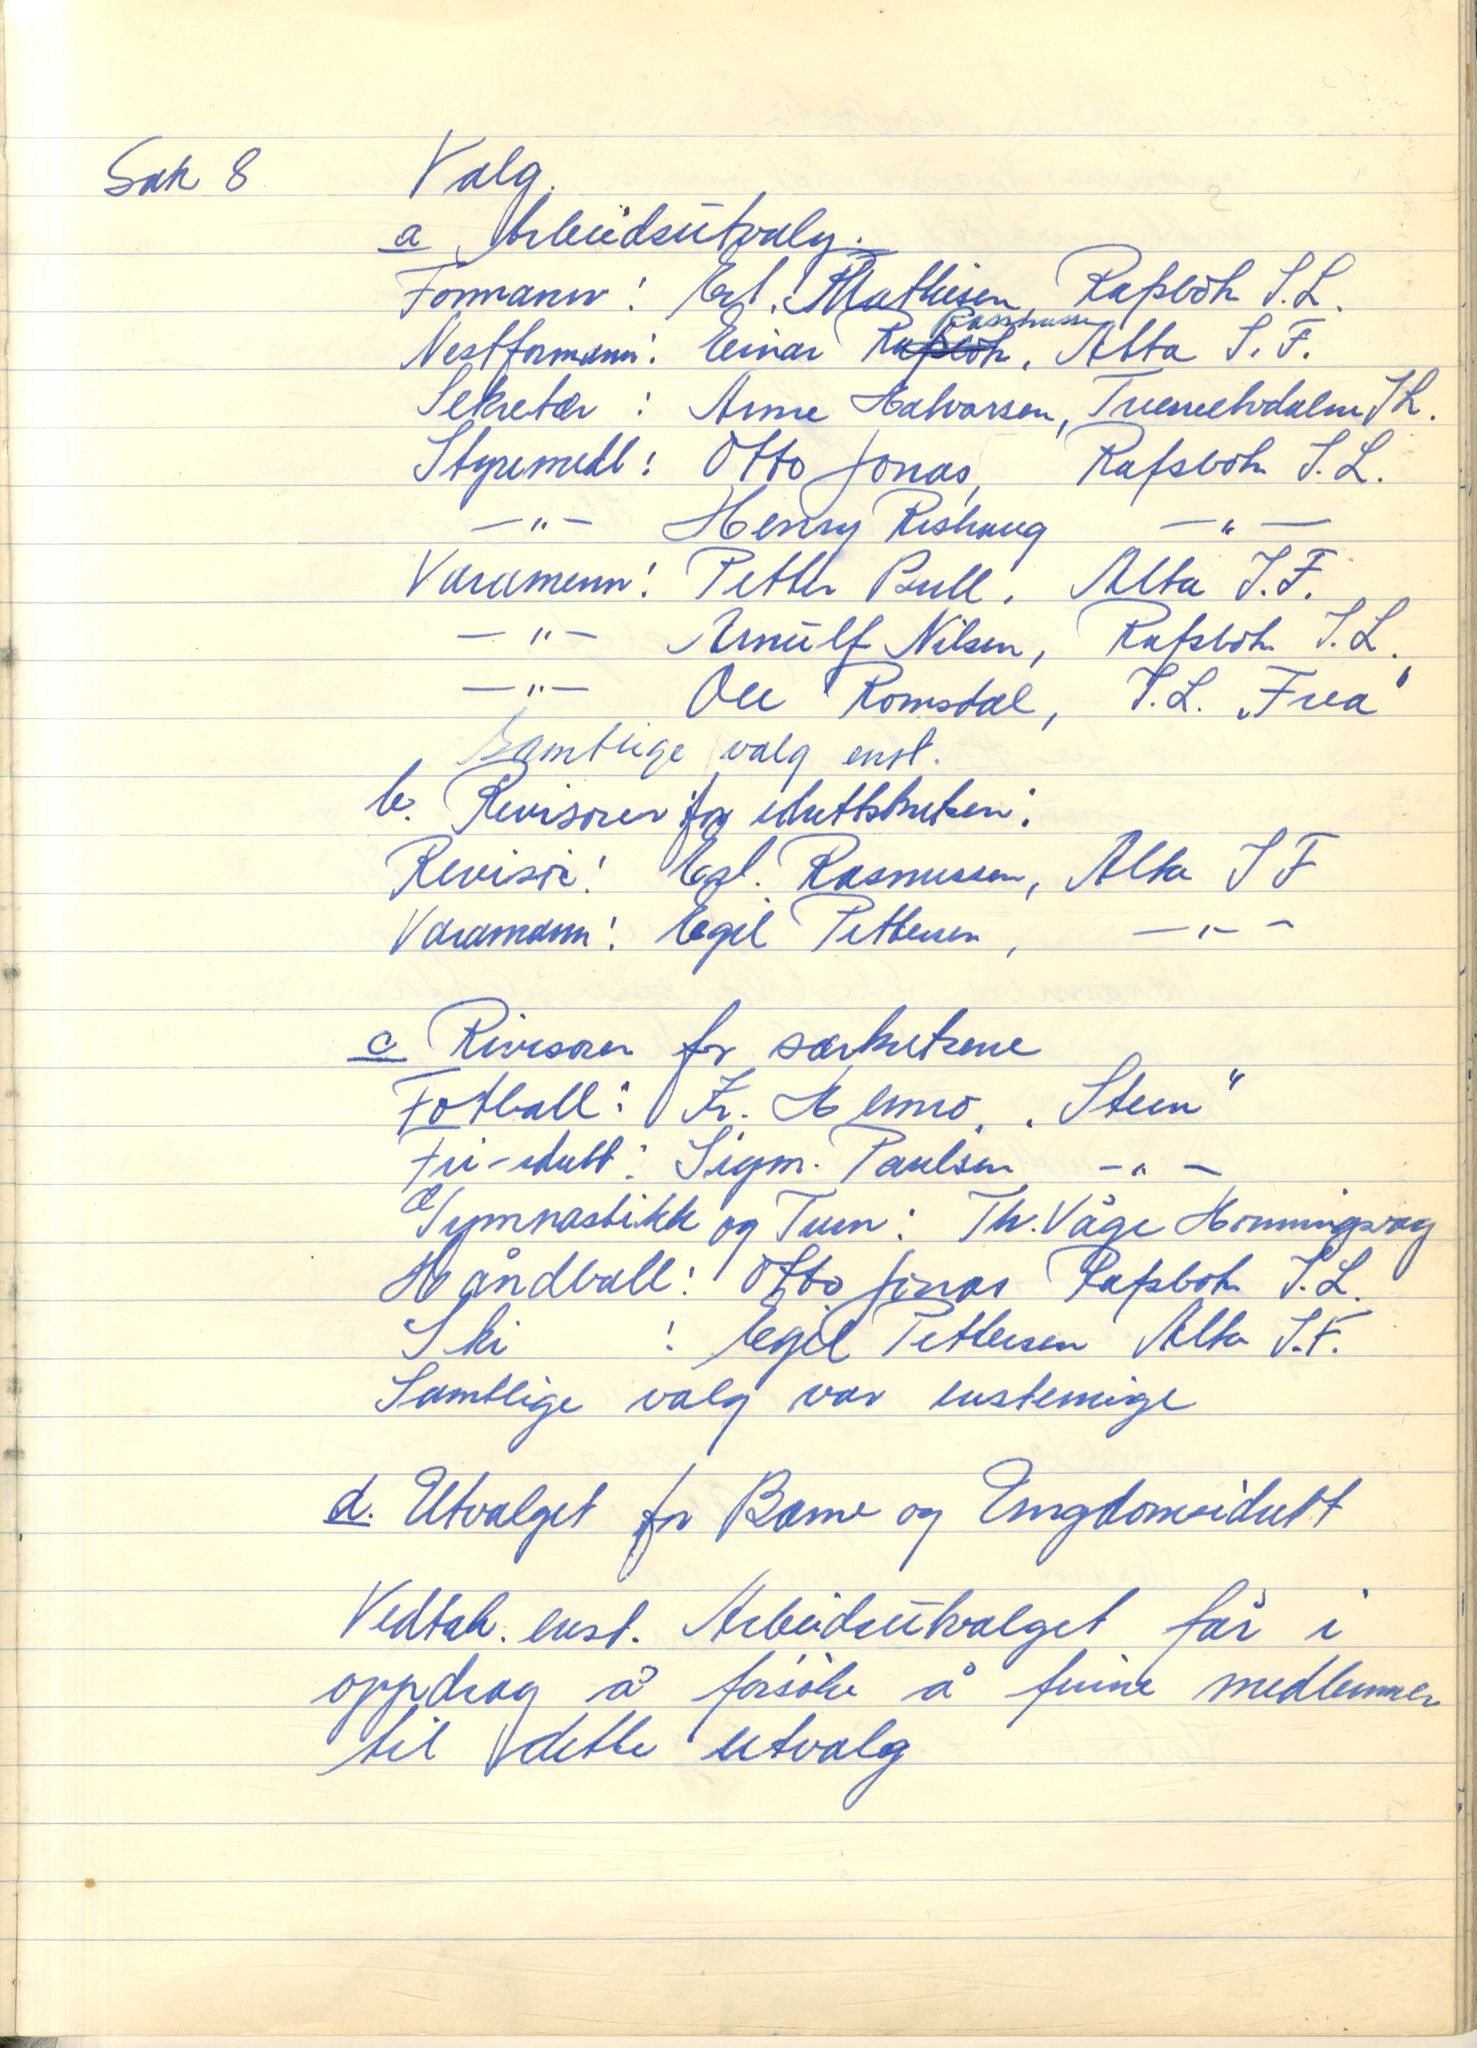 Sak 8 Valg.
a Arbeidsutvalg.
Formann: Erl. Mathisen, Rafsboth I.L.
Rasmussen
Nestformann: Einar Rafsboth, Alta I.F.
Sekretær: Arne Halvorsen, Tverrelvdalen I.L.
Styremedl: Otto Jonas, Rafsboth I.L.
—"— Henry Rishaug —"—
Varamenn: Petter Bull, Alta I.F.
—"— Arnulf Nilsen, Rafsboth I.L.
—"— Ole Romsdal, I.L. „Frea"
Samtlige valg enst.
b. Revisorer for idrettskretsen:
Revisor: Egl. Rasmussen, Alta I F
Varamann: Egil Pettersen, —"—
c Rivisorer for særkretsene
Fotball: Fr. Hemo, „Stein"
Fri-idrett: Sigm. Paulsen —"—
Gymnastikk og Turn: Th. Våge Honningsvåg
Håndball: Otto Jonas Rafsboth I.L.
Ski: Egil Pettersen Alta I.F.
Samtlige valg var enstemige
d. Utvalget for Barne og Ungdomsidrett
Vedtak. enst. Arbeidsutvalget får i
oppdrag å forsöke å finne medlemmer
til dette utvalg